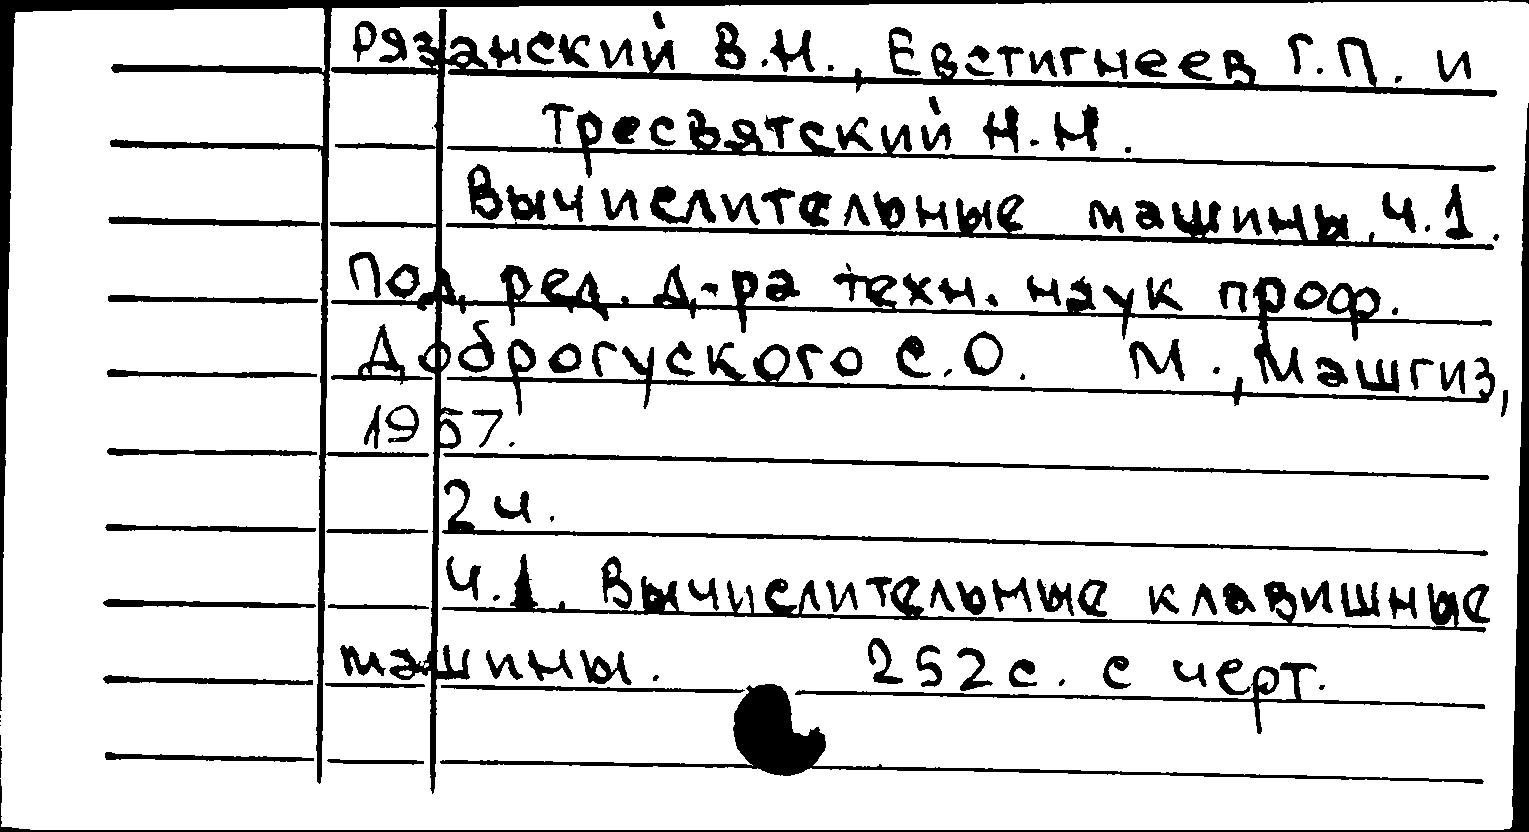 Рязанский В.Н., Евстигнеев Г.П. и
Тресвятский Н.Н.
Вычислительные машины, ч.1.
Под ред. д-ра техн. наук проф.
Доброгуского С.О. М., Машгиз,
1957.
2ч.
Ч.1. Вычислительные клавишные
машины. 252 с. с черт.